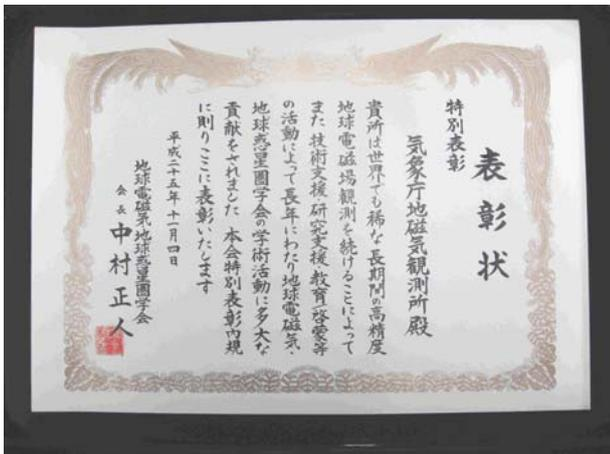 表彰状
特別表彰
気象庁地磁気観測所殿
貴所は世界でも稀な長期間の高精度
地球電磁場観測を続けることによって
また技術支援・研究支援・教育・啓蒙等
の活動によって長年にわたり地球電磁気・
地球惑星圏学会の学術活動に多大な
貢献をされました 本会特別表彰内規
に則りここに表彰いたします
平成二十五年十一月四日
地球電磁気・地球惑星圏学会
会長 中村正人